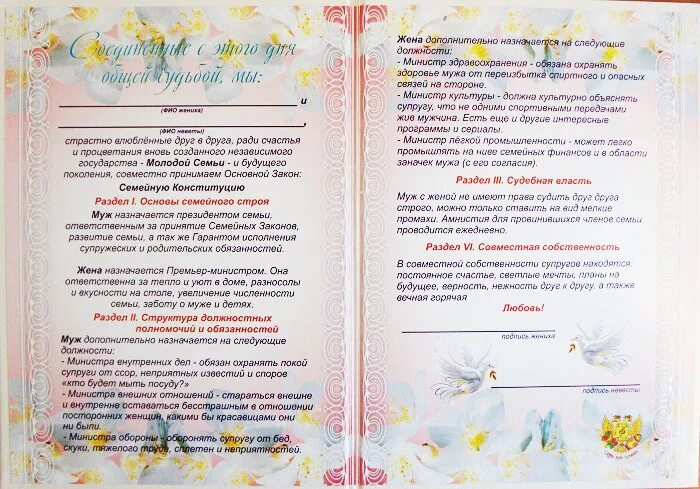 Соединённые с этого дня
общей судьбой, мы:
и
(ФИО жениха)
,
(ФИО невесты)
страстно влюблённые друг в друга, ради счастья
и процветания вновь созданного независимого
государства - Молодой Семьи - и будущего
поколения, совместно принимаем Основной Закон:
Семейную Конституцию
Раздел I. Основы семейного строя
Муж назначается президентом семьи,
ответственным за принятие Семейных Законов,
развитие семьи, а так же Гарантом исполнения
супружеских и родительских обязанностей.
Жена назначается Премьер-министром. Она
ответственна за тепло и уют в доме, разносолы
и вкусности на столе, увеличение численности
семьи, заботу о муже и детях.
Раздел II. Структура должностных
полномочий и обязанностей
Муж дополнительно назначается на следующие
должности:
- Министра внутренних дел - обязан охранять покой
супруги от ссор, неприятных известий и споров
«кто будет мыть посуду?»
- Министра внешних отношений - стараться внешне
и внутренне оставаться бесстрашным в отношении
посторонних женщин, какими бы красавицами они
ни были.
- Министра обороны - оборонять супругу от бед,
скуки, тяжелого труда, сплетен и неприятностей.
Жена дополнительно назначается на следующие
должности:
- Министр здравоохранения - обязана охранять
здоровье мужа от переизбытка спиртного и опасных
связей на стороне.
- Министр культуры - должна культурно объяснять
супругу, что не одними спортивными передачами
жив мужчина. Есть еще и другие интересные
программы и сериалы.
- Министр лёгкой промышленности - может легко
промышлять на ниве семейных финансов и в области
заначек мужа (с его согласия).
Раздел III. Судебная власть
Муж с женой не имеют права судить друг друга
строго, можно только ставить на вид мелкие
промахи. Амнистия для провинившихся членов семьи
проводится ежедневно.
Раздел VI. Совместная собственность
В совместной собственности супругов находятся:
постоянное счастье, светлые мечты, планы на
будущее, верность, нежность друг к другу, а также
вечная горячая
Любовь!
подпись жениха
подпись невесты